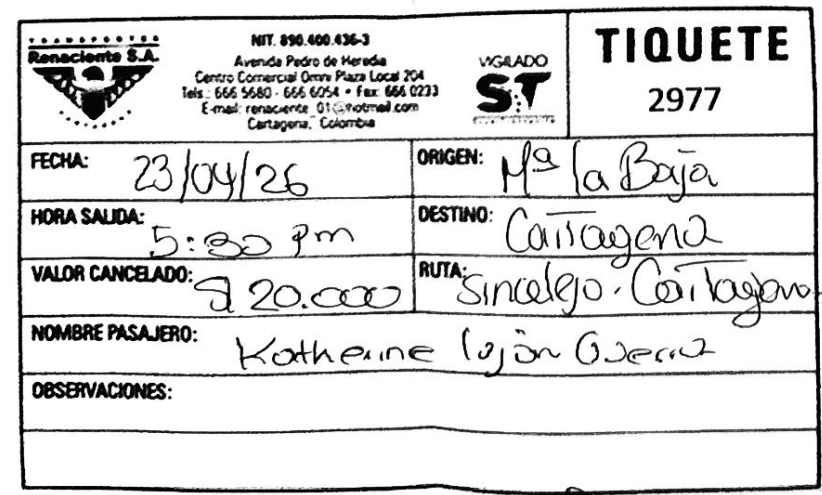 Renaciente S.A.
NIT. 890.400.436-3
Avenida Pedro de Heredia
Centro Comercial Omni Plaza Local 204
Tels.: 666 5680 - 666 6054 • Fax: 666 0233
E-mail: renaciente_01@hotmail.com
Cartagena, Colombia
VIGILADO
ST
TIQUETE
2977
FECHA: 23/04/26
ORIGEN: Mª la Baja
HORA SALIDA: 5:30 pm
DESTINO: Cartagena
VALOR CANCELADO: $ 20.000
RUTA: Sincelejo - Cartagena
NOMBRE PASAJERO: Katherine Luján Guerra
OBSERVACIONES: